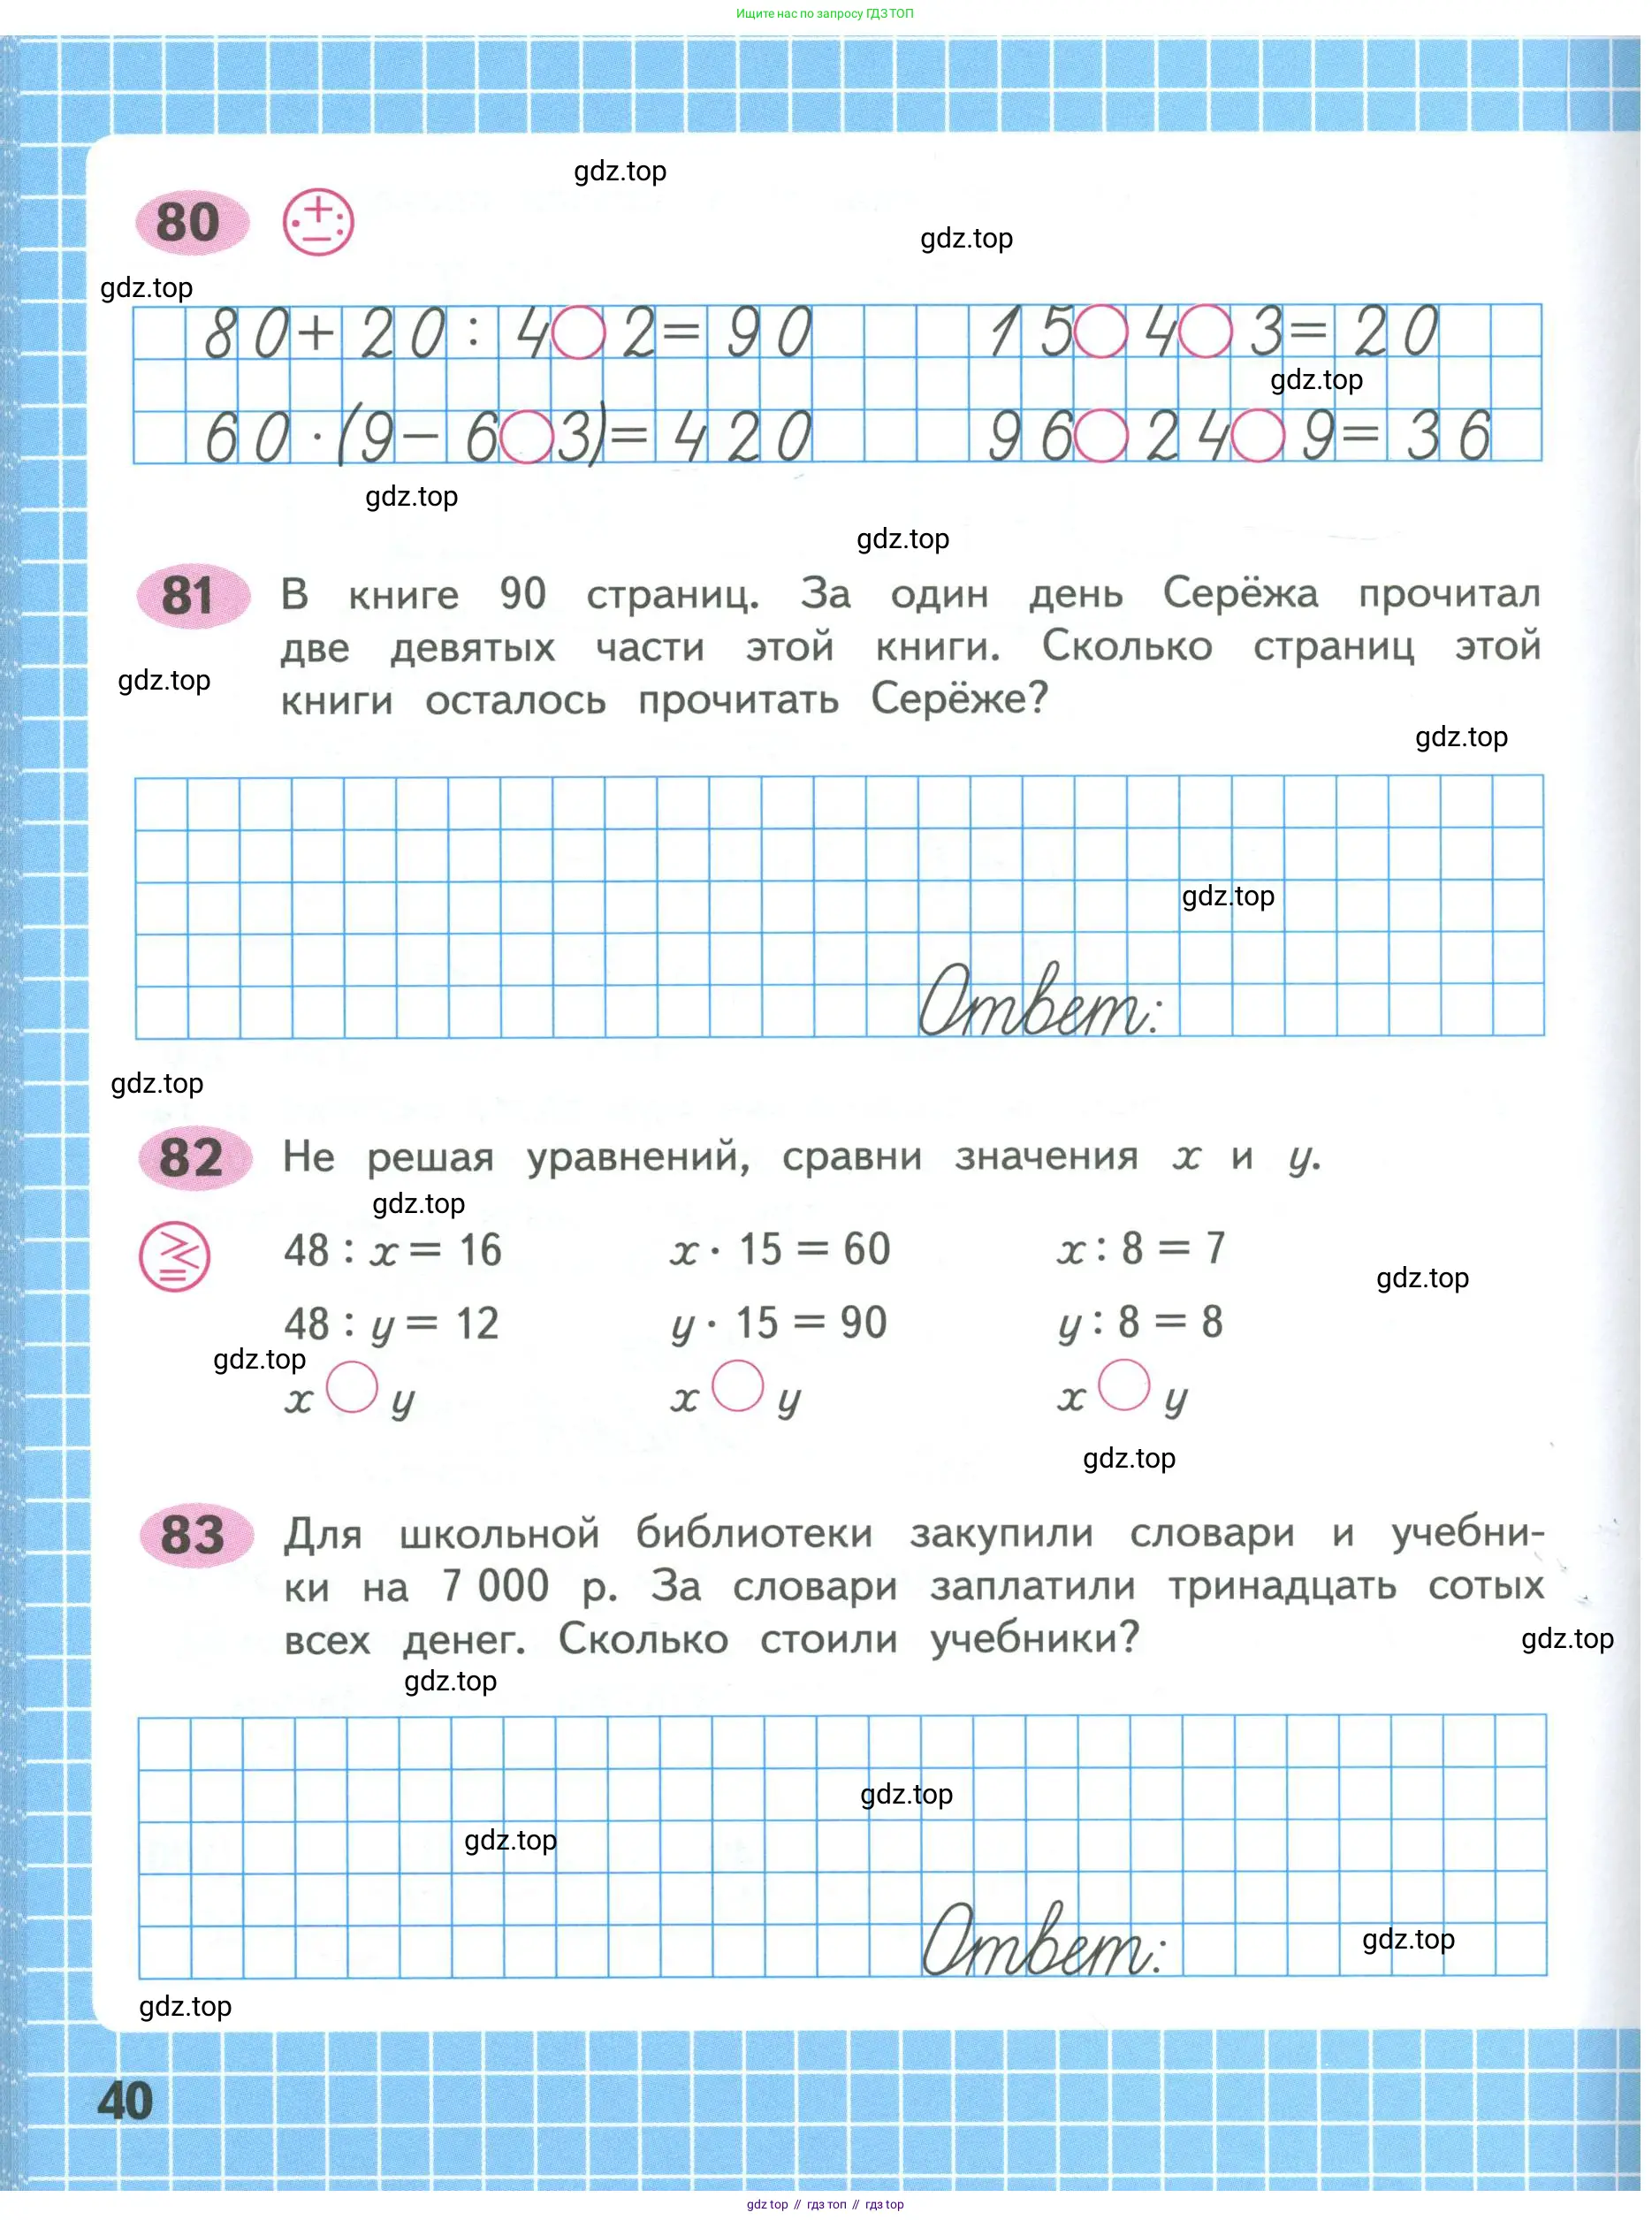 Ищите нас по запросу ГДЗ ТОП
gdz.top
80
gdz.top
gdz.top
80+20:4○2=90
15○4○3=20
gdz.top
60·(9-6○3)=420
96○24○9=36
gdz.top
gdz.top
81 В книге 90 страниц. За один день Серёжа прочитал
две девятых части этой книги. Сколько страниц этой
gdz.top
книги осталось прочитать Серёже?
gdz.top
gdz.top
Ответ:
gdz.top
82 Не решая уравнений, сравни значения x и y.
gdz.top
48 : x = 16 x · 15 = 60 x : 8 = 7
gdz.top
48 : y = 12 y · 15 = 90 y : 8 = 8
gdz.top
x ○ y x ○ y x ○ y
gdz.top
83 Для школьной библиотеки закупили словари и учебни-
ки на 7 000 р. За словари заплатили тринадцать сотых
всех денег. Сколько стоили учебники?
gdz.top
gdz.top
gdz.top
gdz.top
Ответ:
gdz.top
gdz.top
40
gdz top // гдз топ // гдз top